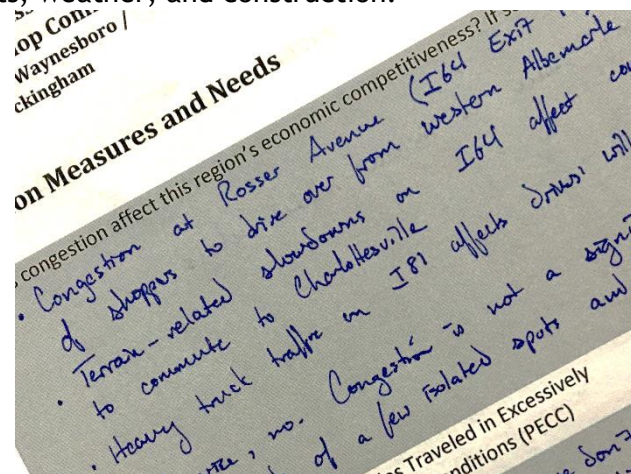 ts, weather, and construction.
op Com
Waynesboro /
ckingham
on Measures and Needs
congestion affect this region's economic competitiveness? If s
• Congestion at Rosser Avenue (I64 Exit
of shoppers to drive over from western Albemarle
• Terrain-related slowdowns on I64 affect co
to commute to Charlottesville
• Heavy truck traffic on I81 affects drivers' will
, no. Congestion is not a signi
of a few isolated spots and
es Traveled in Excessively
nditions (PECC)
don't